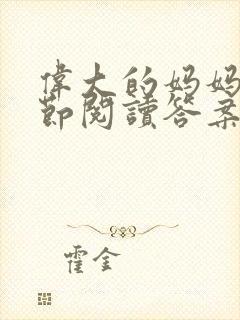 偉大的妈妈
節閱讀答案
霍金